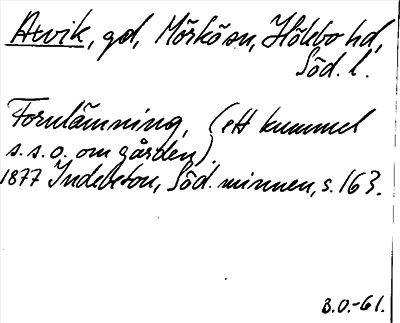 Arvik, gd, Mörkö sn, Hölebo hd,
Söd. l.
Fornlämning, (ett kummel
s.s.o. om gården).
1877 Indebetou, Söd. minnen, s. 163.
B.O.-61.